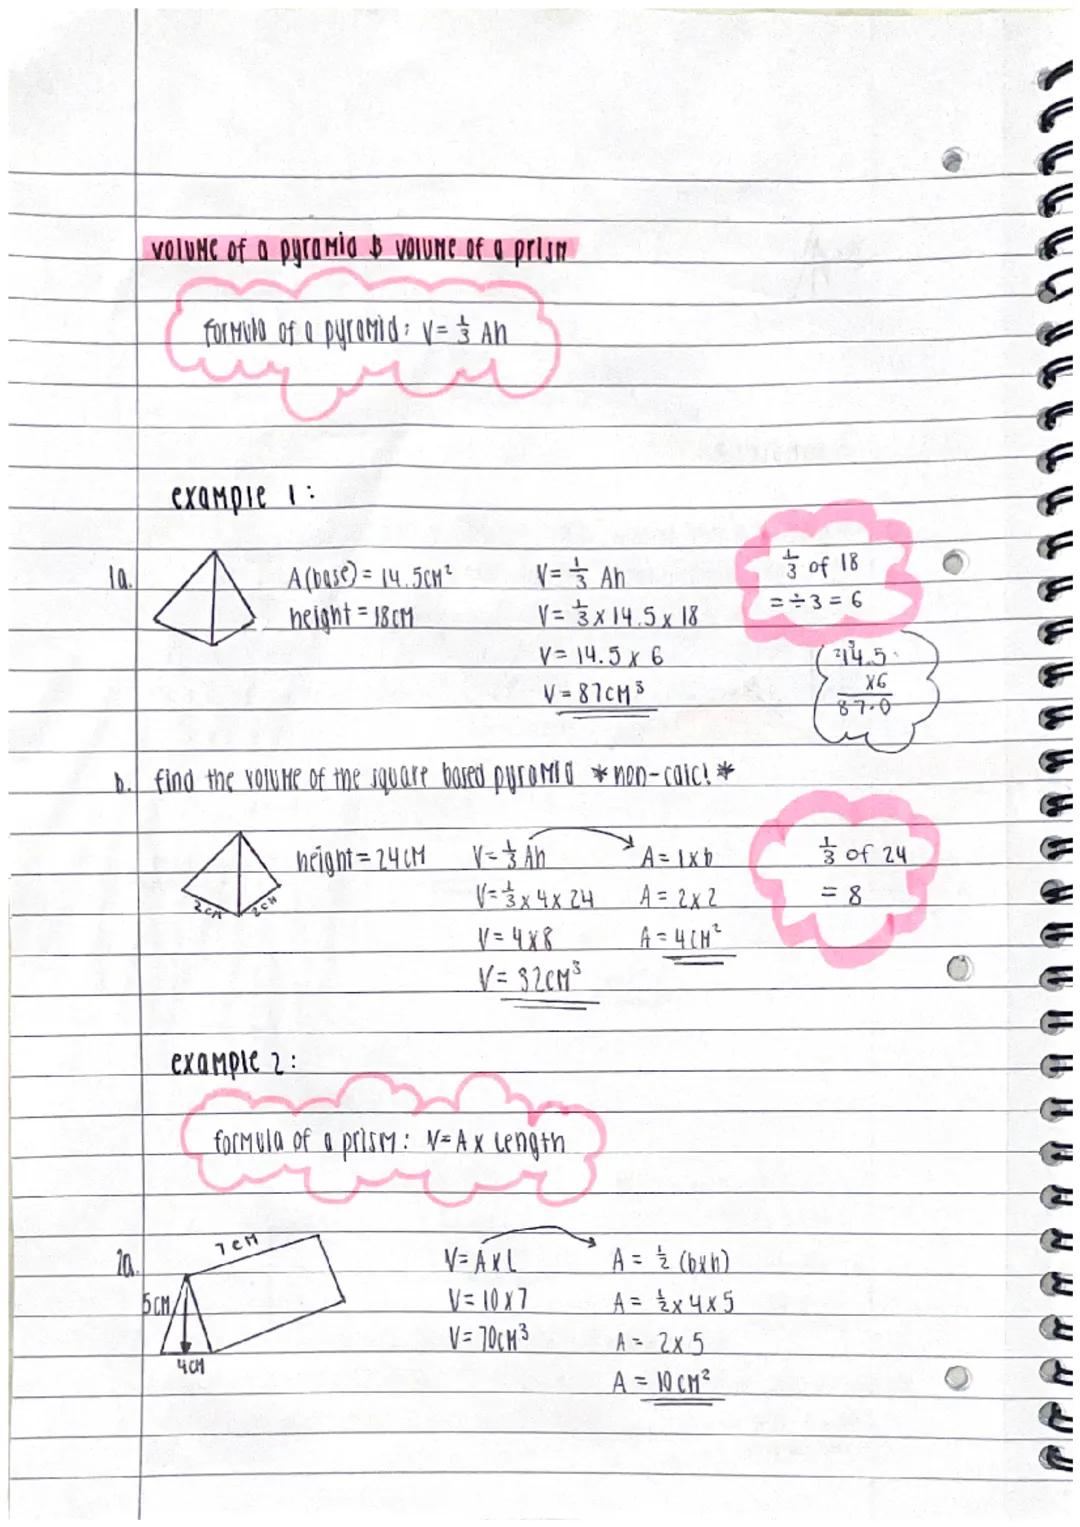 volume of a pyramid & volume of a prism
formula of a pyramid: V= 1/3 Ah
example 1:
1a.
A(base) = 14.5cm²
height = 18cm
V= 1/3 Ah
V= 1/3 x 14.5 x 18
V= 14.5 x 6
V= 87cm³
1/3 of 18
= ÷3 = 6
²1³4.5
x6
87.0
b. find the volume of the square based pyramid *non-calc! *
2cm
2cm
height = 24cm
V= 1/3 Ah
V= 1/3 x 4 x 24
V= 4x8
V= 32cm³
A= l x b
A= 2x2
A= 4cm²
1/3 of 24
= 8
example 2:
formula of a prism: V= A x length
2a.
7cm
5cm
4cm
V= A x L
V= 10 x 7
V= 70cm³
A = 1/2 (bxh)
A = 1/2 x 4 x 5
A = 2x5
A = 10cm²